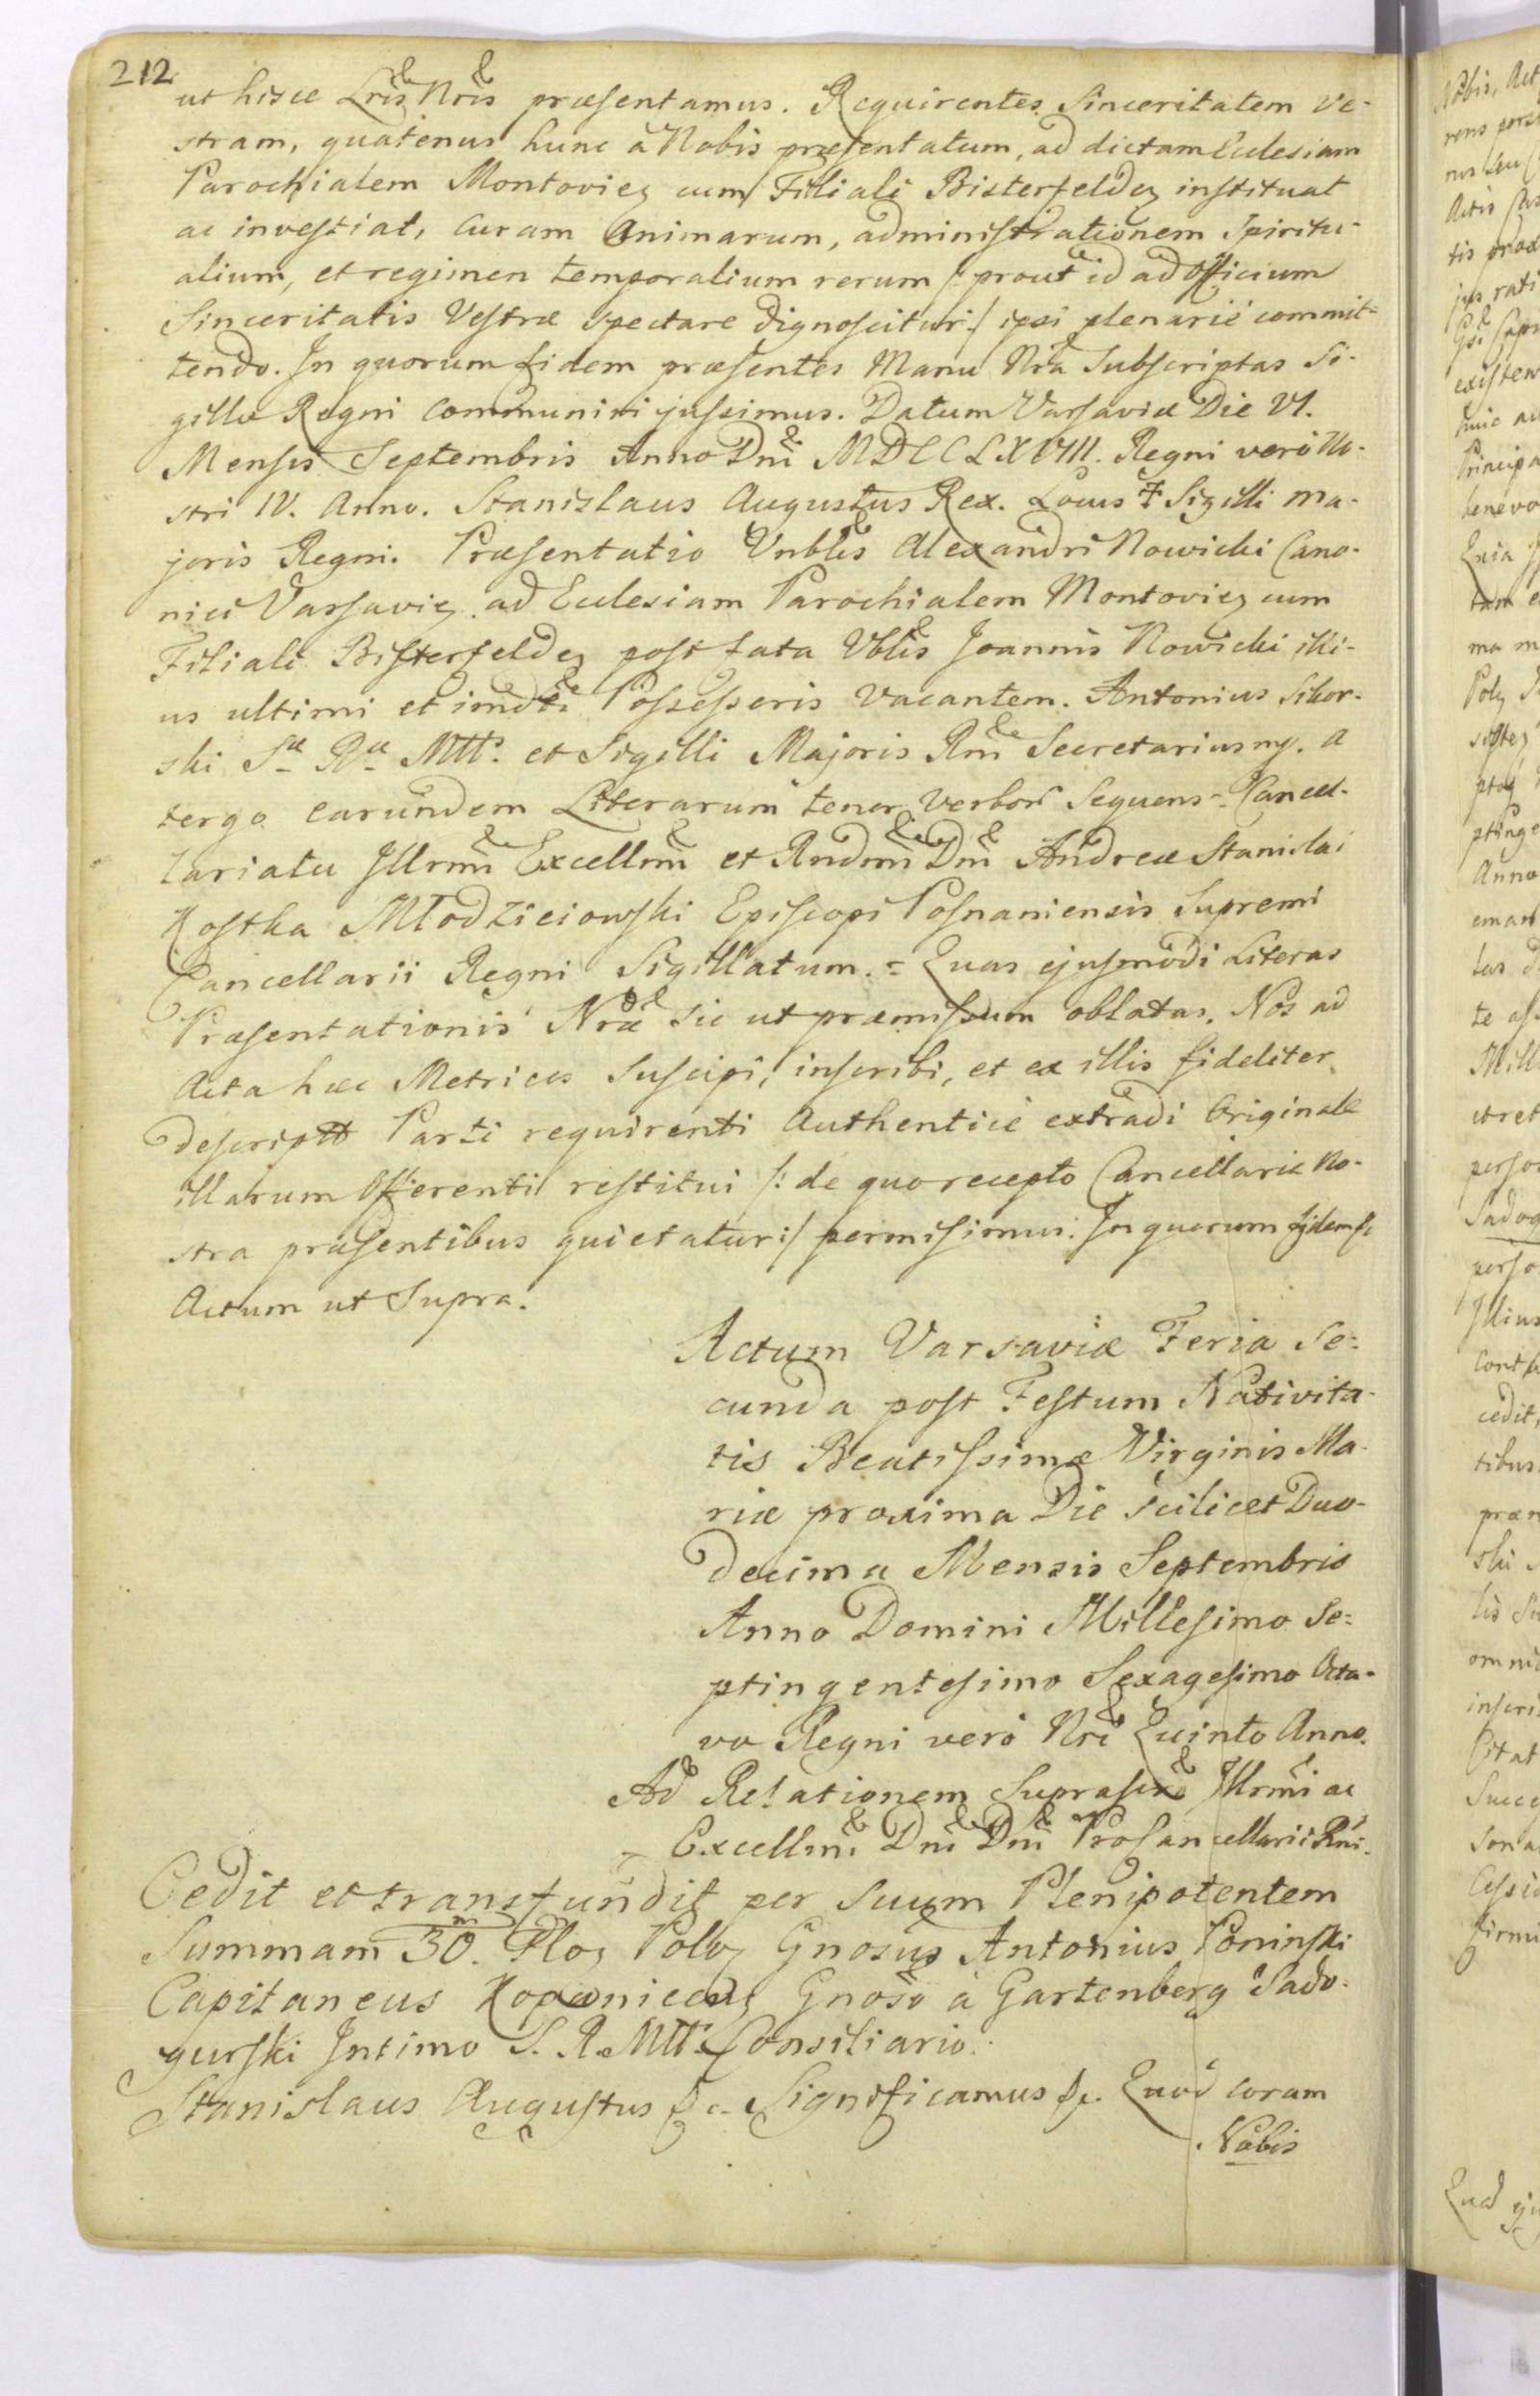 212
ut hisce Lris Nris præsentamus. Requirentes Sinceritatem Ve-
stram, quatenus hunc à Nobis præsentatum, ad dictam Ecclesiam
Parochialem Montoviez cum Filiali Bisterfeldez instituat
ac investiat, Curam Animarum, administrationem Spiritu-
alium, et regimen temporalium rerum /: prout id ad Officium
Sinceritatis Vestræ spectare dignoscitur :/ ipsi plenarie commit-
tendo. In quorum fidem præsentes Manu Nra Subscriptas Si-
gillo Regni communiri jussimus. Datum Varsaviæ Die VI.
Mensis Septembris Anno Dni MDCCLXVIII. Regni verò No-
stri IV. Anno. Stanislaus Augustus Rex. Locus ✝ Sigilli Ma-
joris Regni. Præsentatio Vnblis Alexandri Nowicki Cano-
nici Varsaviez ad Ecclesiam Parochialem Montoviez cum
Filiali Bisterfeldez post fata Vblis Joannis Nowicki illi-
us ultimi et imdti Possessoris Vacantem. Antonius Sikor-
ski Sæ Ræ Mttis et Sigilli Majoris Rni Secretarius mp. A
tergo earundem Literarum tenor verbor Sequens = Cancel-
lariatu Illrmi Excellmi et Rndmi Dni Andreæ Stanislai
Kostka Młodzieiowski Episcopi Posnaniensis Supremi
Cancellarii Regni Sigillatum. = Quas ejusmodi Literas
Præsentationis Nræ sic ut præmissum oblatas, Nos ad
Acta hæc Metrices Suscipi, inscribi, et ex illis fideliter
descriptt Parti requirenti Authenticè extradi Originale
illarum Offerenti restitui /: de quo recepto Cancellaria No-
stra præsentibus quietatur :/ permisimus. In quorum fidem &
Actum ut Supra.
Actum Varsaviæ Feria Se-
cunda post Festum Nativita-
tis Beatissimæ Virginis Ma-
riæ proxima Die scilicet Duo-
decima Mensis Septembris
Anno Domini Millesimo Se-
ptingentesimo Sexagesimo Octa-
vo Regni verò Nri Quinto Anno.
Ad Relationem Suprascr Illrmi ac
Excellmi Dni Dni ProCancellarii Rni.
Cedit et transfundit per suum Plenipotentem
Summam 30.m Floz Poloz Gnosus Antonius Poninski
Capitaneus Kopanicens Gnoso à Gartenberg Sado-
gurski Intimo S. R. Mttis Consiliario.
Stanislaus Augustus &c. Significamus &c. Quod coram
Nobis